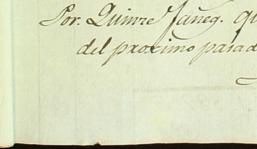 Por. Quinze Faneg. qu
del proximo pasad